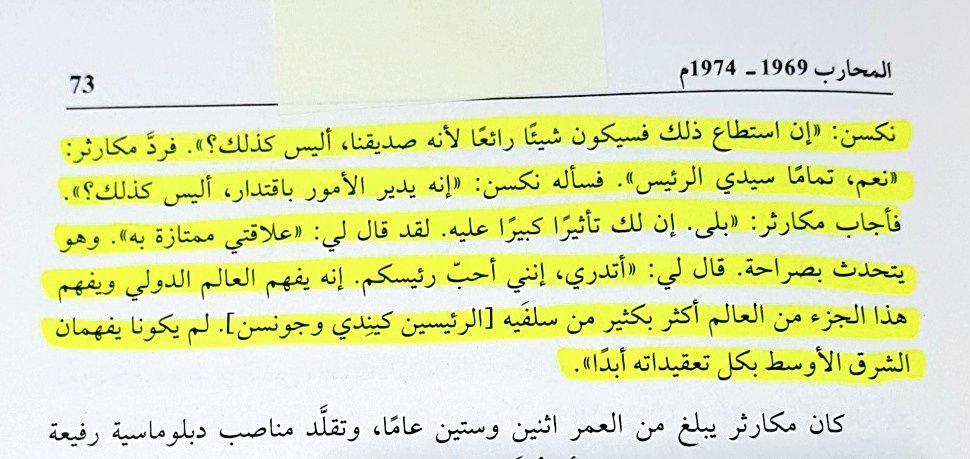 المحارب 1969 ـ 1974م
73
نكسن: «إن استطاع ذلك فسيكون شيئًا رائعًا لأنه صديقنا، أليس كذلك؟». فردَّ مكارثر:
«نعم، تمامًا سيدي الرئيس». فسأله نكسن: «إنه يدير الأمور باقتدار، أليس كذلك؟».
فأجاب مكارثر: «بلى. إن لك تأثيرًا كبيرًا عليه. لقد قال لي: «علاقتي ممتازة به». وهو
يتحدث بصراحة. قال لي: «أتدري، إنني أحبّ رئيسكم. إنه يفهم العالم الدولي ويفهم
هذا الجزء من العالم أكثر بكثير من سلفَيه [الرئيسين كينِدي وجونسن]. لم يكونا يفهمان
الشرق الأوسط بكل تعقيداته أبدًا».
كان مكارثر يبلغ من العمر اثنين وستين عامًا، وتقلَّد مناصب دبلوماسية رفيعة